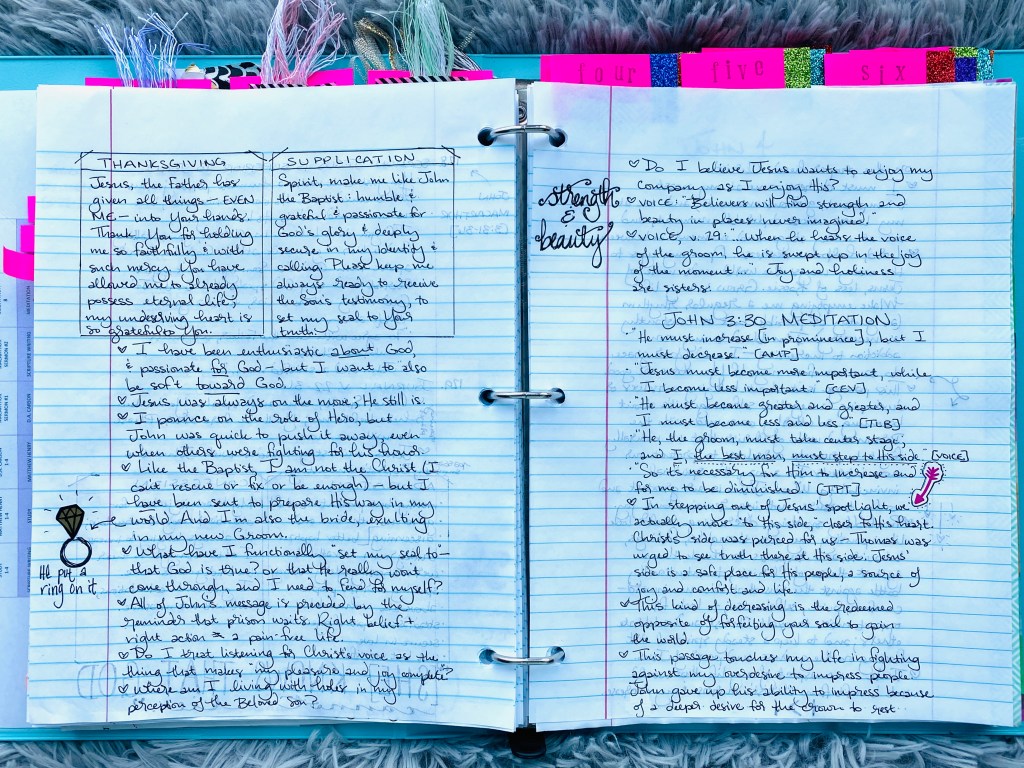 four
five
six
THANKSGIVING
Jesus, the Father has
given all things — EVEN
ME — into Your hands.
Thank You for holding
me so faithfully & with
such mercy. You have
allowed me to already
possess eternal life;
my undeserving heart is
so grateful to You.
SUPPLICATION
Spirit, make me like John
the Baptist: humble &
grateful & passionate for
God's glory & deeply
secure in my identity &
calling. Please keep me
always ready to receive
the Son's testimony, to
set my seal to Your
truth.
♡ I have been enthusiastic about God,
& passionate for God – but I want to also
be soft toward God.
♡ Jesus was always on the move; He still is.
♡ I pounce on the role of Hero, but
John was quick to push it away, even
when others were fighting for his honor.
♡ Like the Baptist, I am not the Christ (I
can't rescue or fix or be enough) – but I
have been sent to prepare His way in my
world. And I'm also the bride, exulting
in my new Groom.
♡ What have I functionally "set my seal to" –
that God is true? or that He really won't
come through, and I need to fend for myself?
♡ All of John's message is preceded by the
reminder that prison waits. Right belief +
right action ≠ a pain-free life.
♡ Do I treat listening for Christ's voice as the
thing that makes "my pleasure and joy complete"?
♡ Where am I living with holes in my
perception of the Beloved Son?
He put a
ring on it
strength
&
beauty
♡ Do I believe Jesus wants to enjoy my
company as I enjoy His?
♡ VOICE: "Believers will find strength and
beauty in places never imagined."
♡ VOICE, v. 29: "...When he hears the voice
of the groom, he is swept up in the joy
of the moment..." Joy and holiness
are sisters.
JOHN 3:30 MEDITATION
· "He must increase [in prominence], but I
must decrease." [AMP]
· "Jesus must become more important, while
I become less important." [CEV]
· "He must become greater and greater, and
I must become less and less." [TLB]
· "He, the groom, must take center stage;
and I, the best man, must step to His side." [VOICE]
· "So it's necessary for Him to increase and
for me to be diminished." [TPT]
♡ In stepping out of Jesus' spotlight, we
actually move "to His side," closer to His heart.
Christ's side was pierced for us – Thomas was
urged to see truth there at His side. Jesus'
side is a safe place for His people, a source of
joy and comfort and life.
♡ This kind of decreasing is the redeemed
opposite of forfeiting your soul to gain
the world.
♡ This passage touches my life in fighting
against my overdesire to impress people.
John gave up his ability to impress because
of a deeper desire for the crown to rest